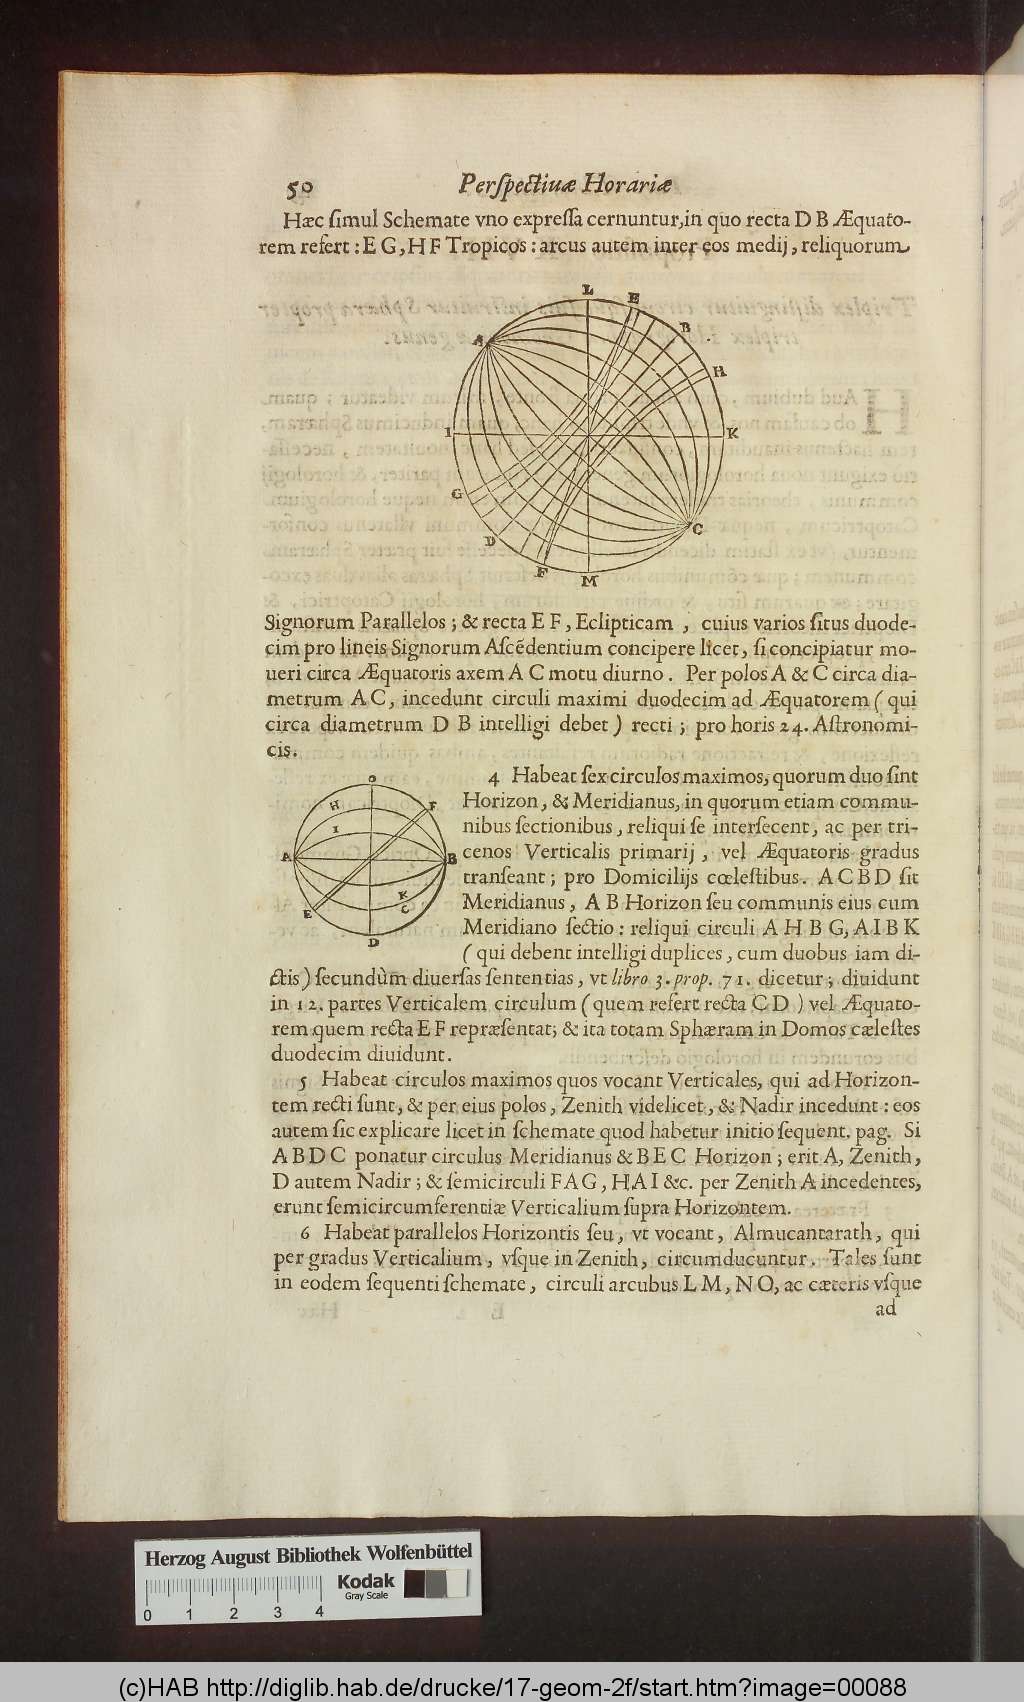 50 Perſpectiuæ Horariæ
Hæc ſimul Schemate vno expreſſa cernuntur, in quo recta D B Æquato-
rem refert: E G, H F Tropicos: arcus autem inter eos medij, reliquorum
L
E
B
A
H
I
K
G
D
C
F
M
Signorum Parallelos; & recta E F, Eclipticam, cuius varios ſitus duode-
cim pro lineis Signorum Aſcẽdentium concipere licet, ſi concipiatur mo-
ueri circa Æquatoris axem A C motu diurno. Per polos A & C circa dia-
metrum A C, incedunt circuli maximi duodecim ad Æquatorem ( qui
circa diametrum D B intelligi debet ) recti; pro horis 24. Aſtronomi-
cis.
O
H
F
I
A
B
K
E
C
D
4 Habeat ſex circulos maximos, quorum duo ſint
Horizon, & Meridianus, in quorum etiam commu-
nibus ſectionibus, reliqui ſe interſecent, ac per tri-
cenos Verticalis primarij, vel Æquatoris gradus
tranſeant; pro Domicilijs cœleſtibus. A C B D ſit
Meridianus, A B Horizon ſeu communis eius cum
Meridiano ſectio: reliqui circuli A H B G, A I B K
( qui debent intelligi duplices, cum duobus iam di-
ctis ) ſecundùm diuerſas ſententias, vt libro 3. prop. 71. dicetur; diuidunt
in 12. partes Verticalem circulum ( quem refert recta C D ) vel Æquato-
rem quem recta E F repræſentat; & ita totam Sphæram in Domos cæleſtes
duodecim diuidunt.
5 Habeat circulos maximos quos vocant Verticales, qui ad Horizon-
tem recti ſunt, & per eius polos, Zenith videlicet, & Nadir incedunt: eos
autem ſic explicare licet in ſchemate quod habetur initio ſequent. pag. Si
A B D C ponatur circulus Meridianus & B E C Horizon; erit A, Zenith,
D autem Nadir; & ſemicirculi F A G, H A I &c. per Zenith A incedentes,
erunt ſemicircumferentiæ Verticalium ſupra Horizontem.
6 Habeat parallelos Horizontis ſeu, vt vocant, Almucantarath, qui
per gradus Verticalium, vſque in Zenith, circumducuntur. Tales ſunt
in eodem ſequenti ſchemate, circuli arcubus L M, N O, ac cæteris vſque
ad
Herzog August Bibliothek Wolfenbüttel
Kodak
Gray Scale
0 1 2 3 4
(c)HAB http://diglib.hab.de/drucke/17-geom-2f/start.htm?image=00088